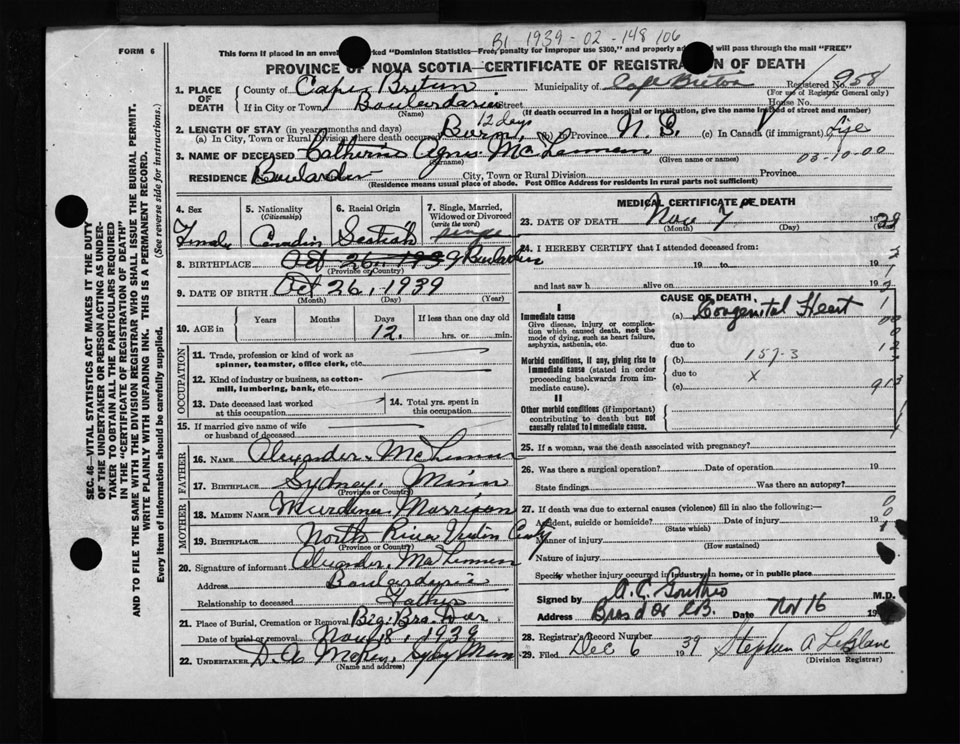 B1 1939-02-148106
FORM 6
This form if placed in an envel ked "Dominion Statistics—Free, penalty for improper use $300," and properly ad will pass through the mail "FREE"
PROVINCE OF NOVA SCOTIA—CERTIFICATE OF REGISTRATION OF DEATH
1. PLACE OF DEATH
County of Cape Breton Municipality of Cape Breton Registered No. 958
(For use of Registrar General only)
If in City or Town Boulardarie Street House No.
(Name) (If death occurred in a hospital or institution, give the name instead of street and number)
2. LENGTH OF STAY (in years, months and days) 12 days
(a) In City, Town or Rural Division where death occurred Born (b) Province N.S. (c) In Canada (if immigrant) life
3. NAME OF DECEASED Catherine Agnes McLennan
(Surname) (Given name or names) 03-10-00
RESIDENCE City, Town or Rural Division Province
(Residence means usual place of abode. Post Office Address for residents in rural parts not sufficient)
4. Sex 5. Nationality (Citizenship) 6. Racial Origin 7. Single, Married, Widowed or Divorced (write the word)
Female Scotish single
8. BIRTHPLACE Oct 26 1939
(Province or Country)
9. DATE OF BIRTH Oct 26, 1939
(Month) (Day) (Year)
10. AGE in Years Months Days If less than one day old
12. hrs. or min.
OCCUPATION
11. Trade, profession or kind of work as spinner, teamster, office clerk, etc.
12. Kind of industry or business, as cotton-mill, lumbering, bank, etc.
13. Date deceased last worked at this occupation
14. Total yrs. spent in this occupation
15. If married give name of wife or husband of deceased
FATHER
16. NAME Alexander McLennan
17. BIRTHPLACE Sydney Mines
(Province or Country)
MOTHER
18. MAIDEN NAME Murdena Morrison
19. BIRTHPLACE North River
(Province or Country)
20. Signature of informant Alexander McLennan
Address
Relationship to deceased Father
21. Place of Burial, Cremation or Removal Big Bras Dor
Date of burial or removal Nov 8, 1939
22. UNDERTAKER D.A. McRey, Sydny Mines
(Name and address)
MEDICAL CERTIFICATE OF DEATH
23. DATE OF DEATH Nov 7 1939
(Month) (Day)
24. I HEREBY CERTIFY that I attended deceased from:
19 to 19
and last saw h alive on 19
CAUSE OF DEATH
I
Immediate cause
Give disease, injury or complication which caused death, not the mode of dying, such as heart failure, asphyxia, asthenia, etc.
(a) Congenital Heart
due to
Morbid conditions, if any, giving rise to immediate cause (stated in order proceeding backwards from immediate cause).
(b) 157-3
due to X
(c) 913
II
Other morbid conditions (if important) contributing to death but not causally related to immediate cause.
25. If a woman, was the death associated with pregnancy?
26. Was there a surgical operation? Date of operation 19
State findings Was there an autopsy?
27. If death was due to external causes (violence) fill in also the following:—
Accident, suicide or homicide? Date of injury 19
(State which)
Manner of injury
(How sustained)
Nature of injury
Specify whether injury occurred in industry, in home, or in public place
Signed by M.D.
Address Bras d'Or C.B. Date Nov 16 19
28. Registrar's Record Number
29. Filed Dec 6 1939 Stephen A LeBlanc
(Division Registrar)
SEC. 46—VITAL STATISTICS ACT MAKES IT THE DUTY
OF THE UNDERTAKER OR PERSON ACTING AS UNDERTAKER
TO OBTAIN ALL THE PARTICULARS REQUIRED
IN THE "CERTIFICATE OF REGISTRATION OF DEATH"
AND TO FILE THE SAME WITH THE DIVISION REGISTRAR WHO SHALL ISSUE THE BURIAL PERMIT.
WRITE PLAINLY WITH UNFADING INK. THIS IS A PERMANENT RECORD.
Every item of Information should be carefully supplied. (See reverse side for instructions.)